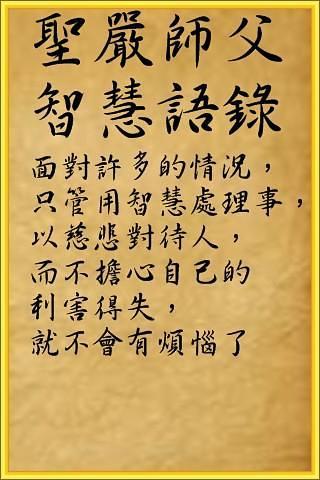 聖嚴師父
智慧語錄
面對許多的情況，
只管用智慧處理事，
以慈悲對待人，
而不擔心自己的
利害得失，
就不會有煩惱了